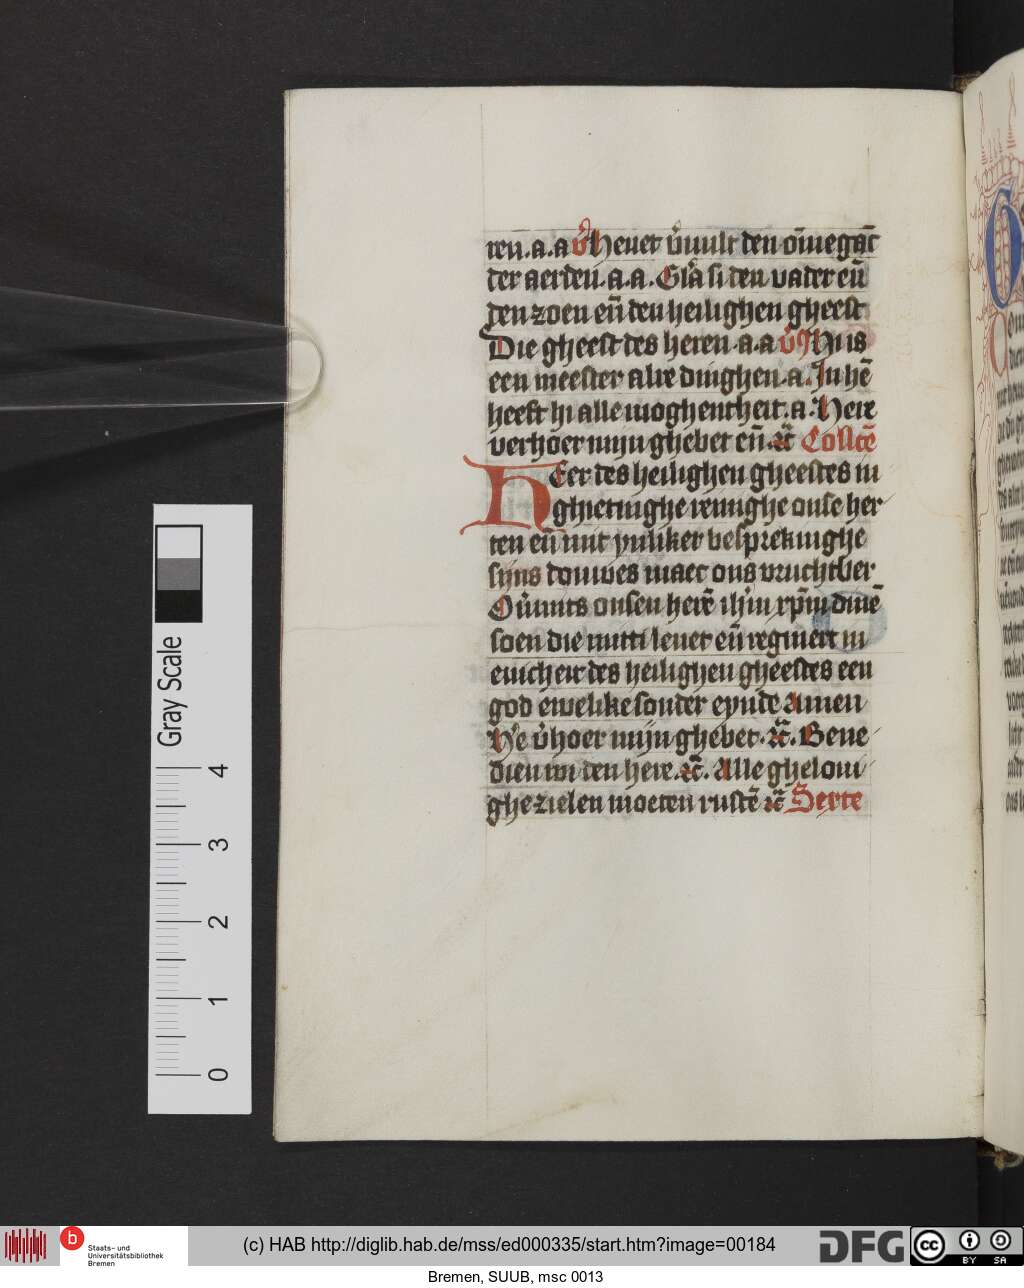 ren. a. a v̄ Heuet v̄uult den ōmegāc
der aerden. a. a. Glā si den vader eñ
den zoen eñ den heilighen gheest
Die gheest des heren. a. a v̄s Hi is
een meester alre dinghen. a. In hē
heeft hi alle moghentheit. a. Here
verhoer mijn ghebet eñ. ꝛc̄ Collcē
HEer des heilighen gheestes in
ghietinghe reinighe onse her
ten eñ mit ynliker besprekinghe
sijns douwes maec ons vruchtber
Ou̅mits onsen herē ihm̄ xp̄m dinē
soen die mitti leuet eñ regniert in
ewicheit des heilighen gheestes een
god ewelike sonder eynde Amen
He v̄hoer mijn ghebet. ꝛc̄. Bene
dien wi den here. ꝛc̄. Alle gheloui
ghe zielen moeten rustē ꝛc̄ Serte
Gray Scale
4
3
2
1
0
b
Staats- und
Universitätsbibliothek
Bremen
(c) HAB http://diglib.hab.de/mss/ed000335/start.htm?image=00184
DFG
cc
BY SA
Bremen, SUUB, msc 0013